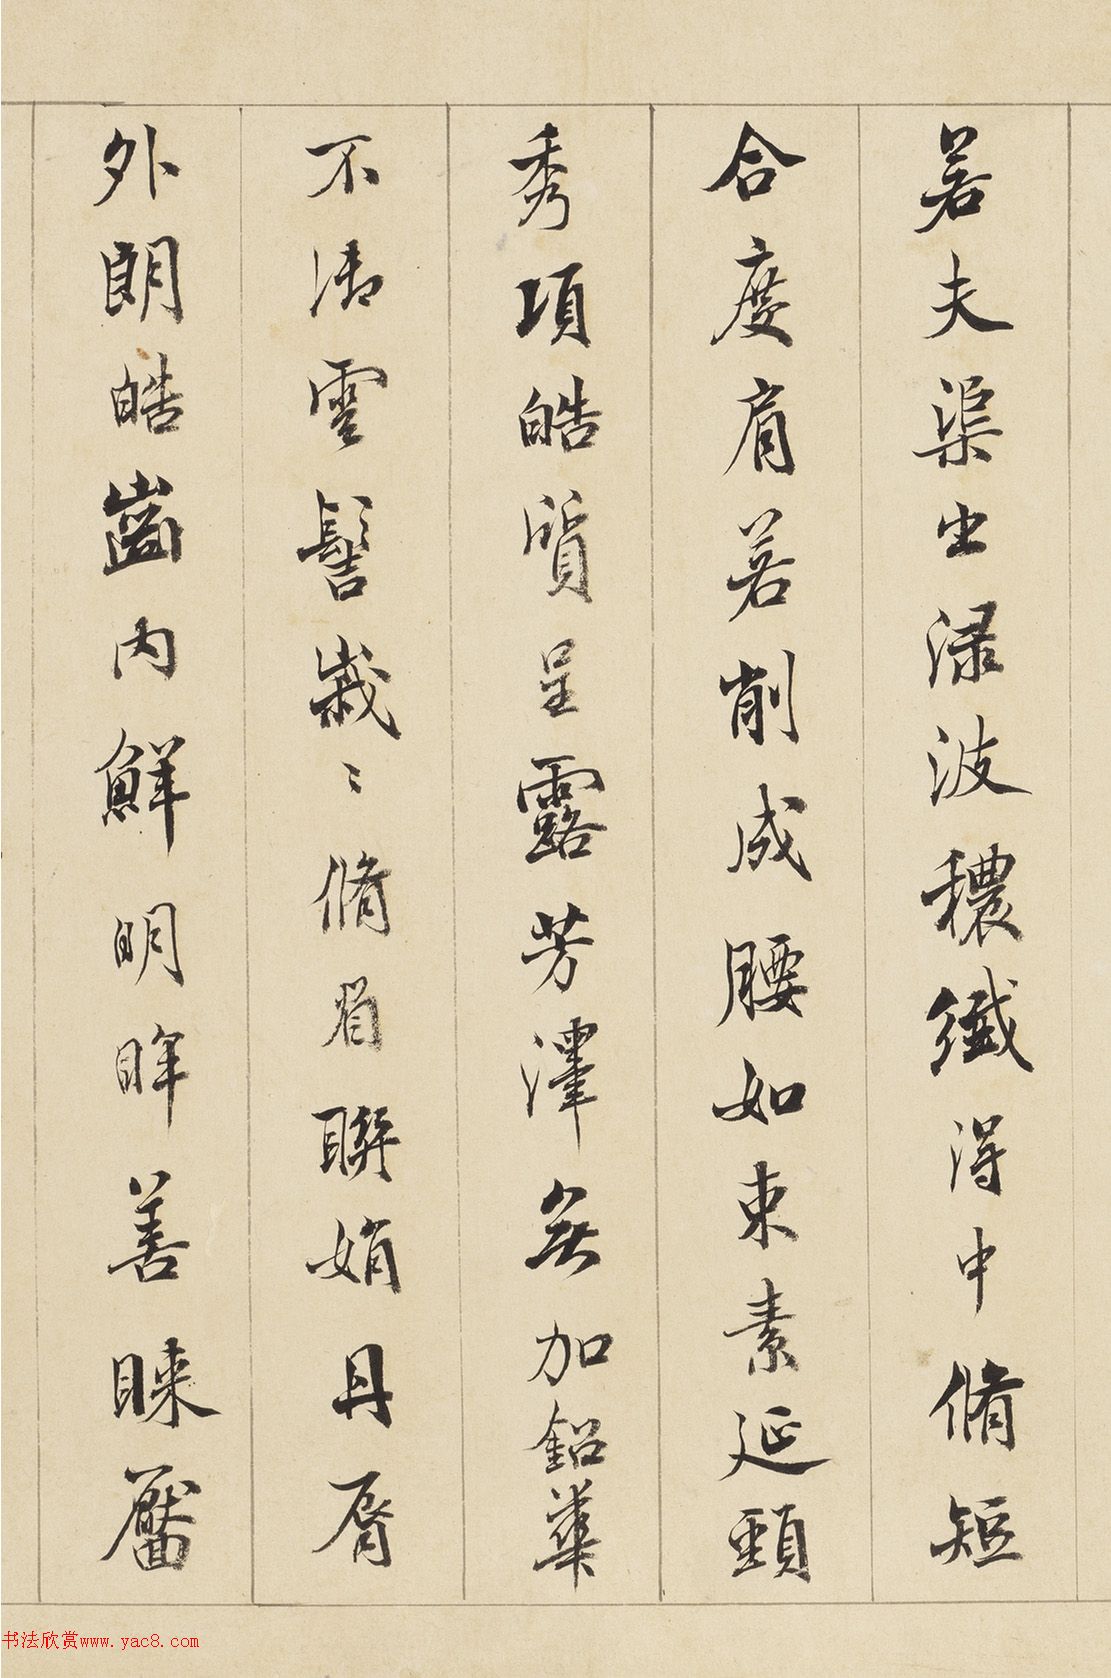 若夫渠出渌波穠纖得中脩短
合度肩若削成腰如束素延頸
秀項皓質呈露芳澤無加鉛華
不御雲髻峩〻脩眉聯娟丹脣
外朗皓齒内鮮明眸善睞靨
书法欣赏www.yac8.com